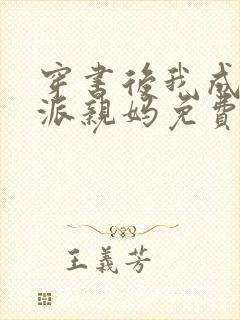 穿書後我成
派親媽免費
王義芳